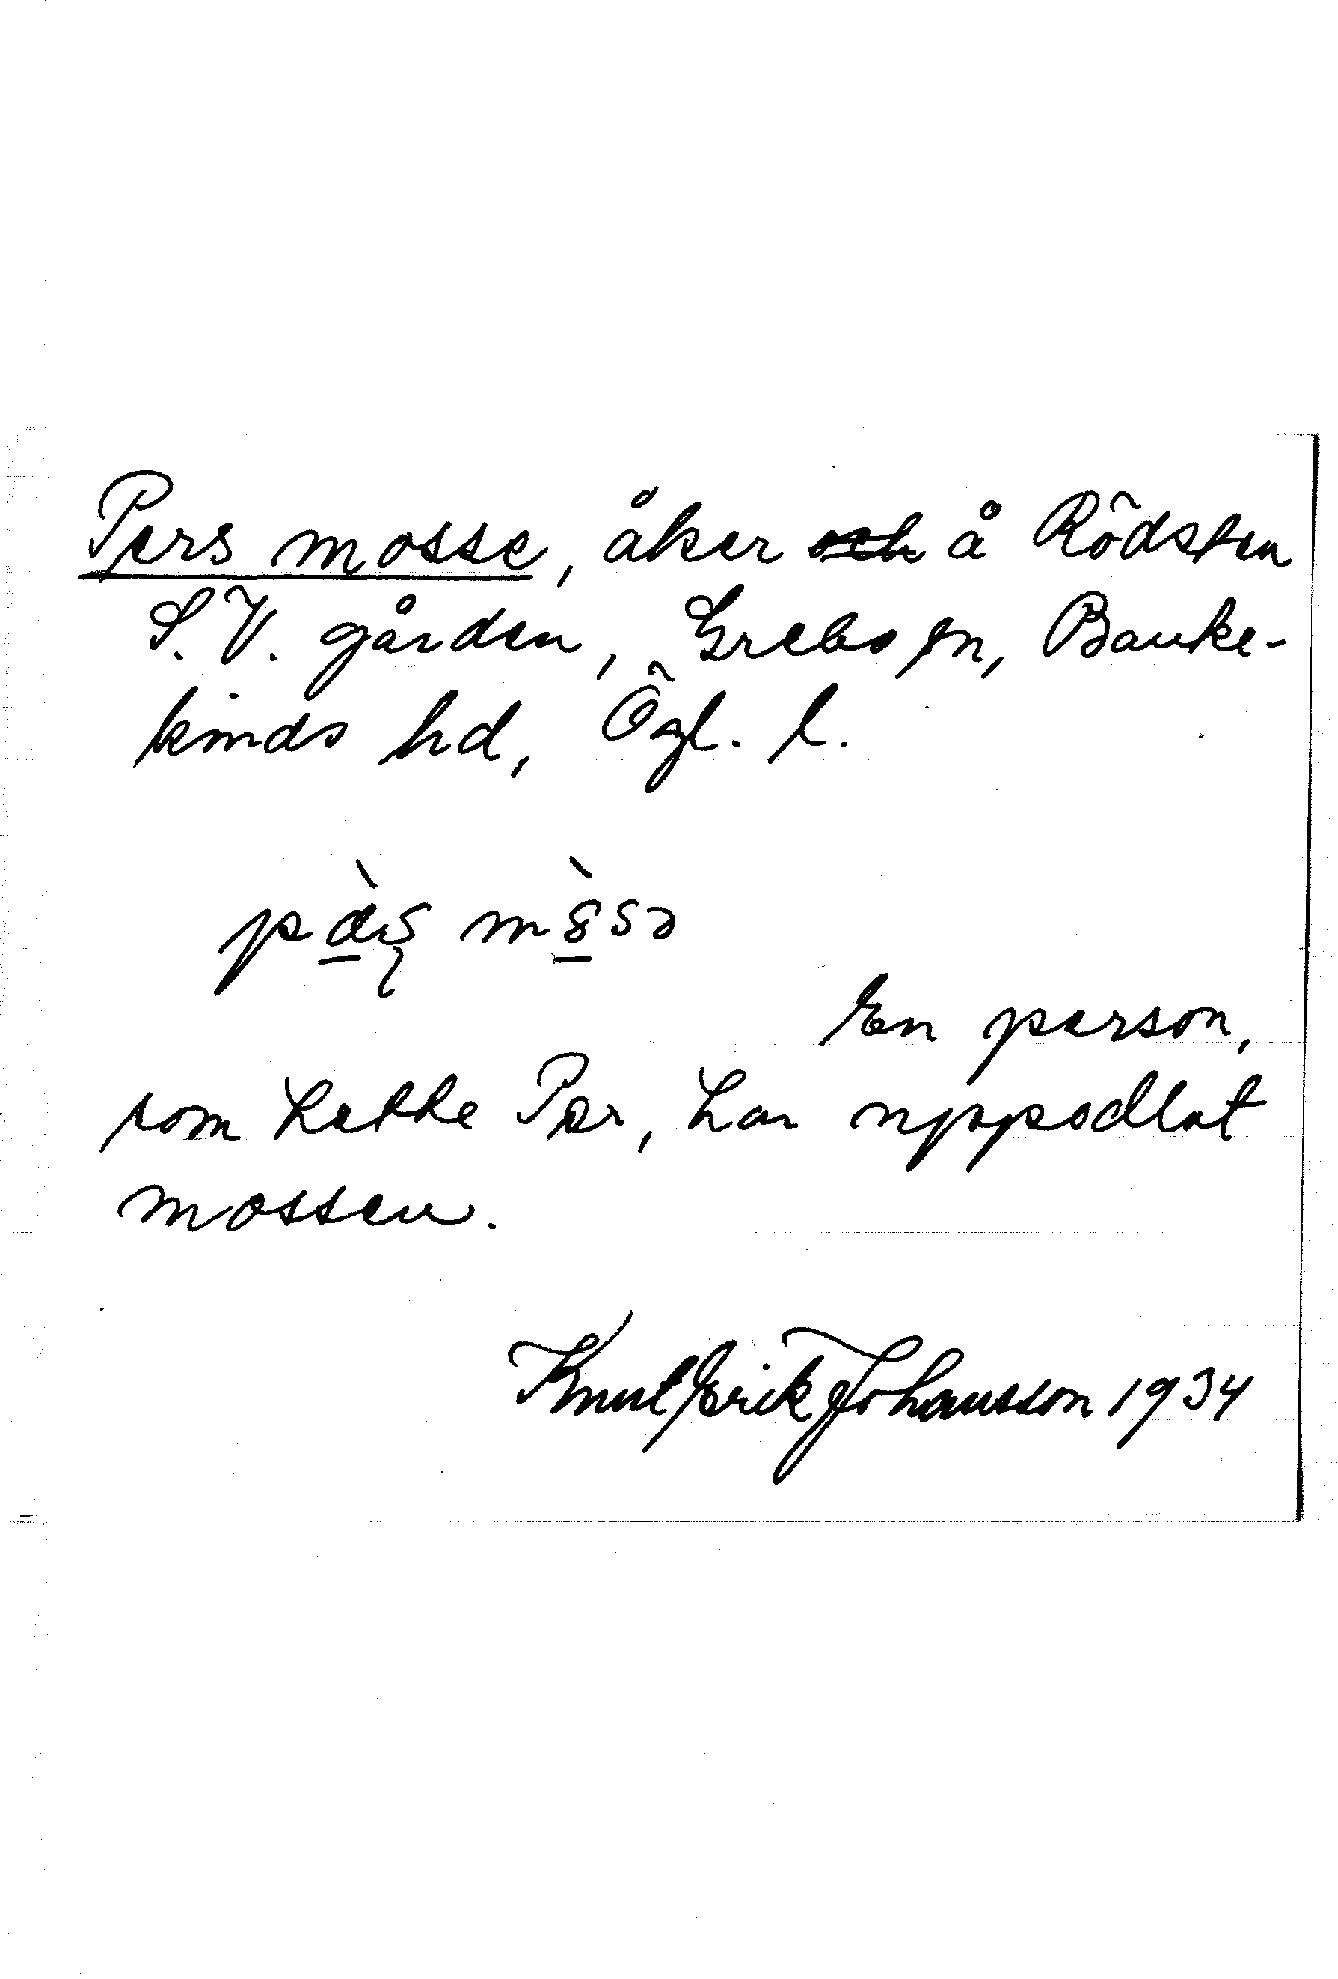 Pers mosse, åker och å Rödsten
S.V. gården, Grebo sn, Banke-
kinds hd, Ögl. l.
mòsə
En person,
som hette Per, har uppodlat
mossen.
Knut Erik Johansson 1934